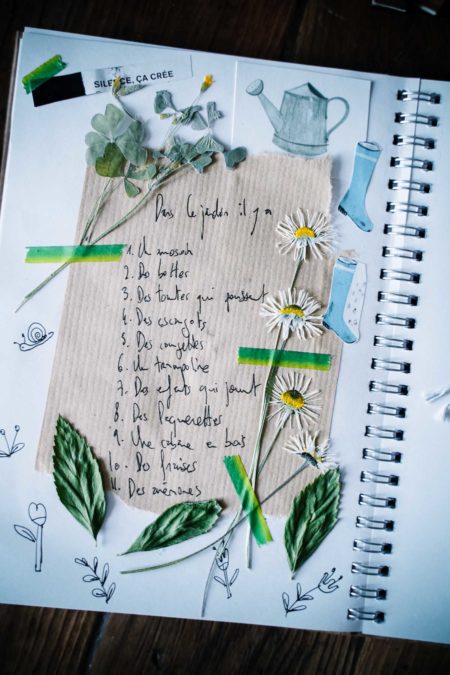 SILENCE, ÇA CRÉE
Dans le jardin il y a
1. Un
2. De
3. Des qui poussent
4. Des escargots
5. Des
6. Un trampoline
7. Des enfants qui jouent
8. Des Paquerettes
9. Une cabane en bois
10. Des fraises
11. Des anémones